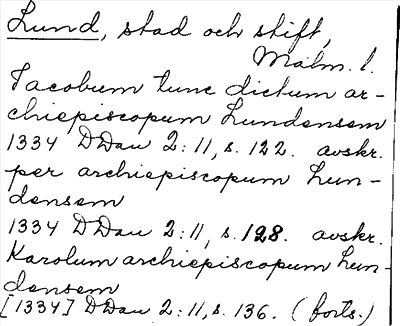 Lund, stad och stift,
Malm. l.
Jacobum tunc dictum ar-
chiepiscopum Lundensem
1334 DDan 2:11, s. 122. avskr.
per archiepiscopum Lun-
densem
1334 DDan 2:11, s. 128. avskr.
Karolum archiepiscopum Lun-
densem
[1334] DDan 2:11, s. 136. (forts.)